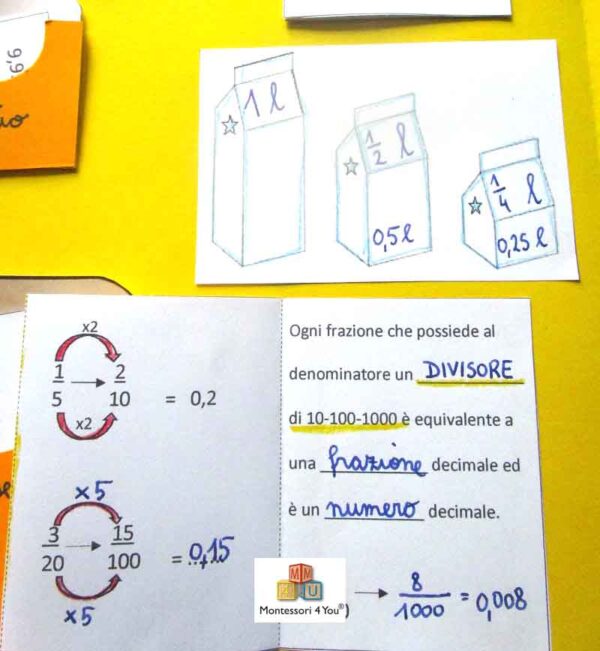 9,9
1 ℓ
1/2 ℓ
0,5 ℓ
1/4 ℓ
0,25 ℓ
x2
1/5 → 2/10 = 0,2
x2
x5
3/20 → 15/100 = 0,15
x5
Ogni frazione che possiede al
denominatore un DIVISORE
di 10-100-1000 è equivalente a
una frazione decimale ed
è un numero decimale.
→ 8/1000 = 0,008
M M
4 U
Montessori 4You®)